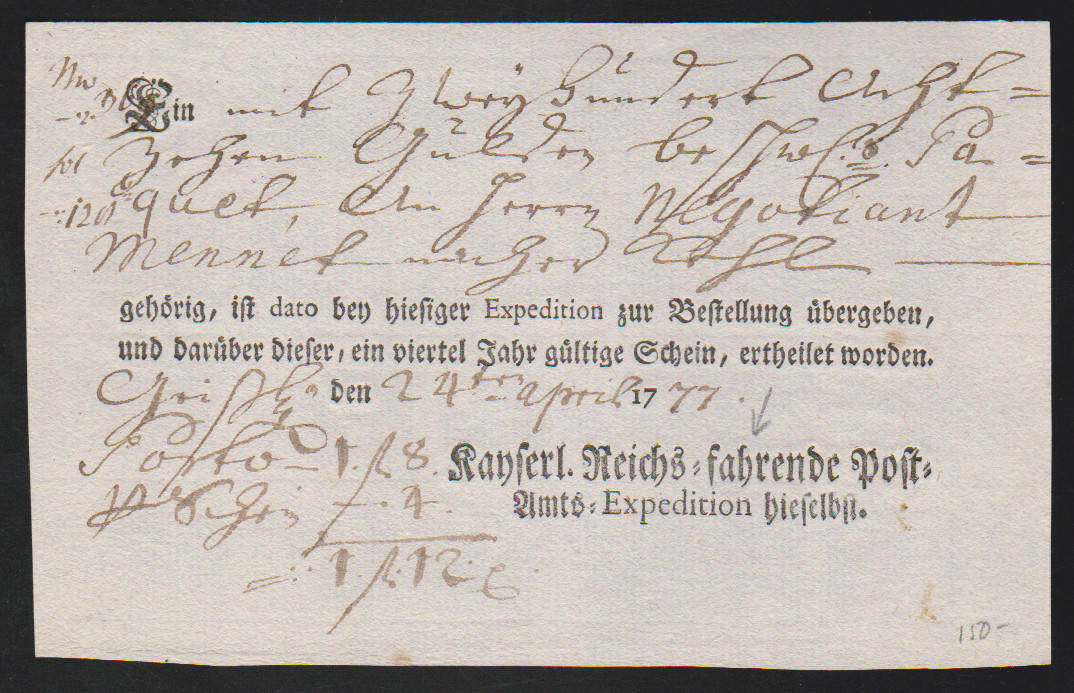 Ein mit Zweyhundert Acht=
zehen Gulden beschw. Pa=
quet, An Herrn Negotiant
Mennet nacher Kehl
gehörig, ist dato bey hiesiger Expedition zur Bestellung übergeben,
und darüber dieser, ein viertel Jahr gültige Schein, ertheilet worden.
den 24ten April 1777.
Porto 1 f 8.
Schein 4.
1 f 12 x
Kayserl. Reichs-fahrende Post-
Amts-Expedition hieselbst.
150-